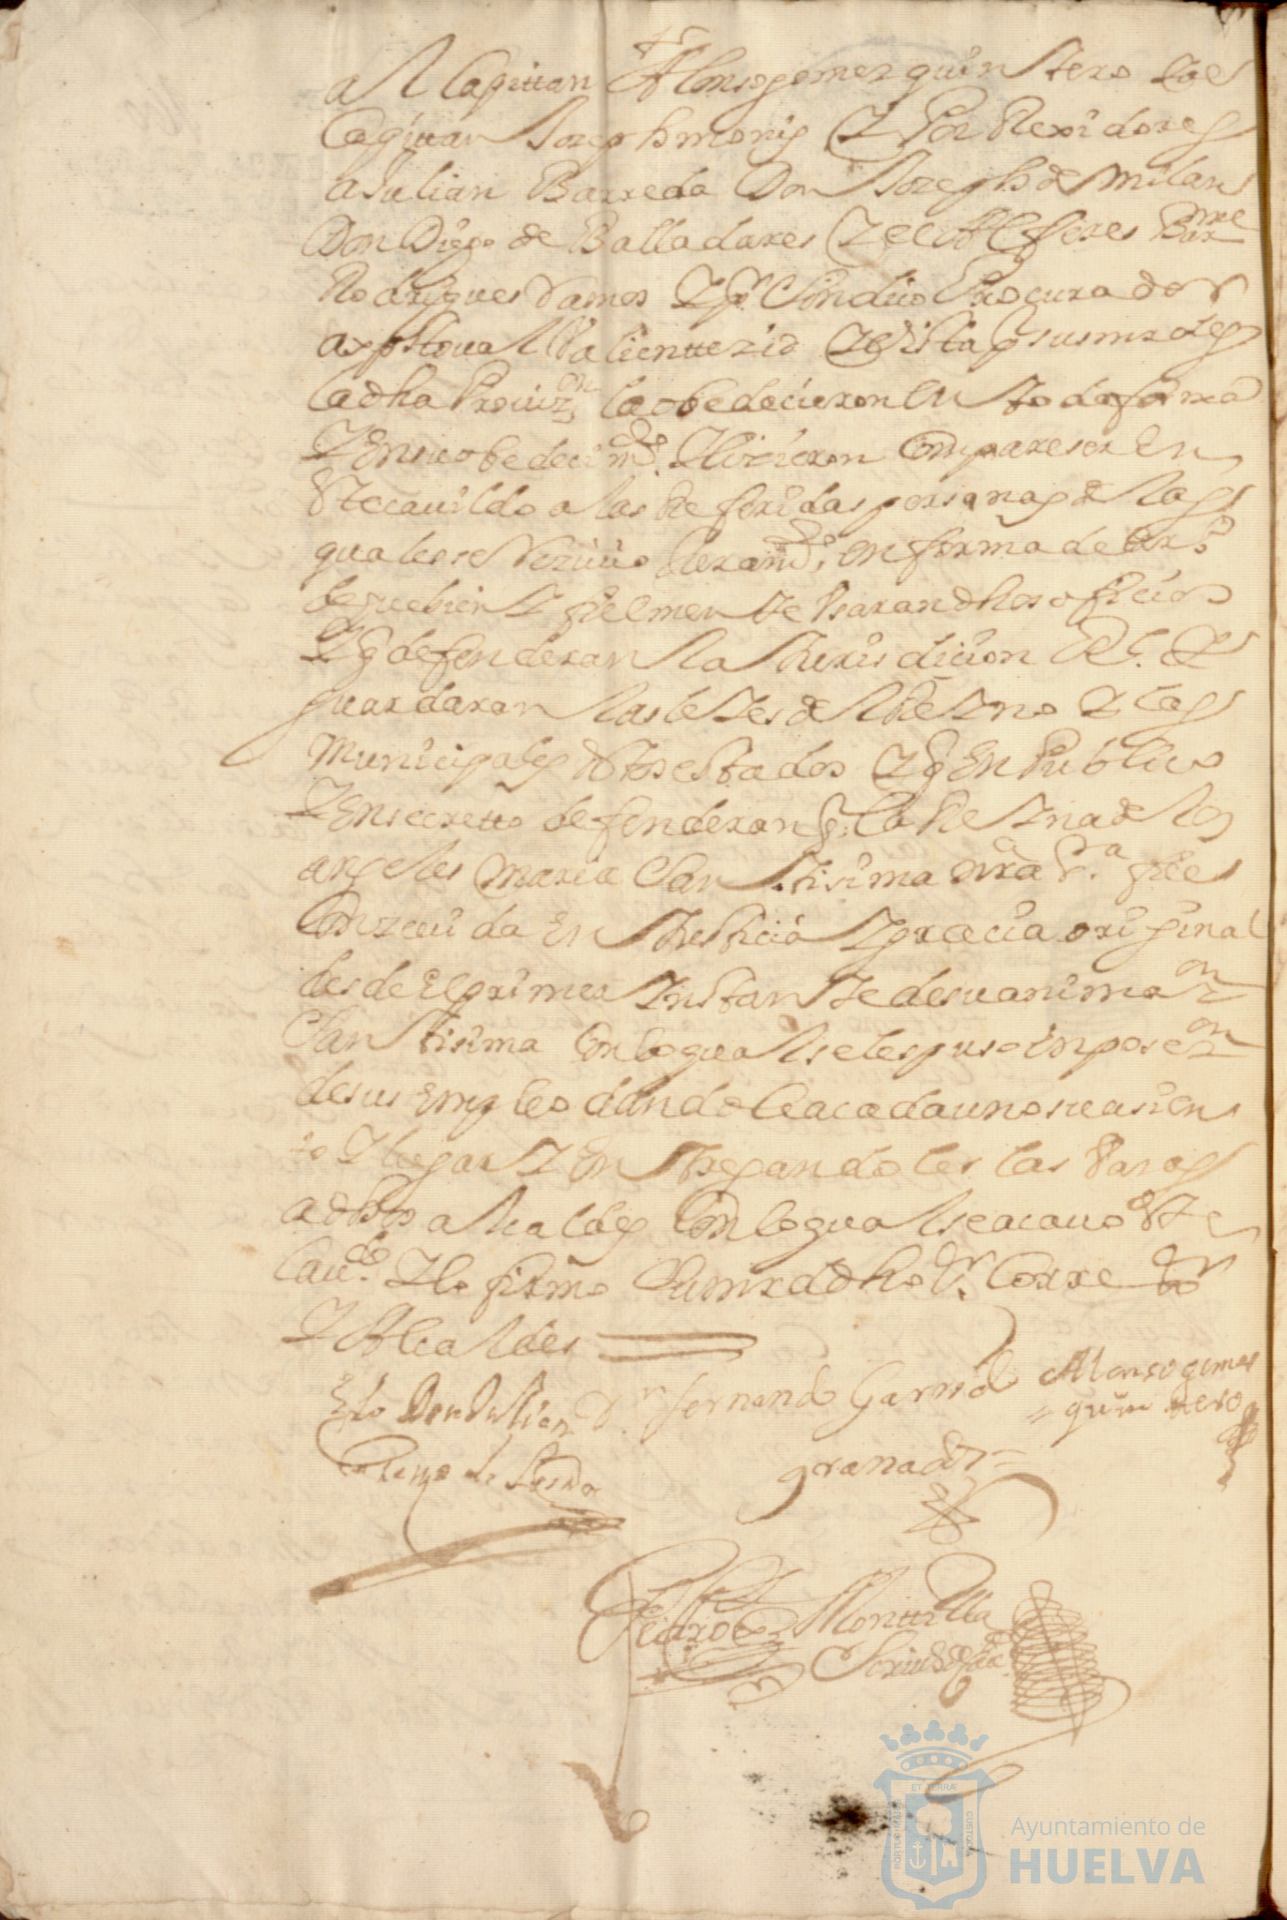 al Capitan Alonso gomez quintero y al
Capitan Joseph moniz Y Por Rexidores
a Julian Barreda Don Joseph de milan
Don Diego de Balladares Y el Alferes Barme
Rodrigues Ramos Y pr Sindico Procurador
a xpstoual Valiente zid Y vista p sus mrdes
la dha Prouizon la obedecieron en toda forma
Y En su obedecimto Hizieron Compareser En
este cauildo a las Referidas personas de las
quales se Reziuio Juramto en forma de dro
de que bien Y fielmente Usaran dhos oficios
Y q defenderan la Jurisdicion Rl Y
guardaran las leyes del Reyno Y las
Municipales destos estados Y q En Publico
Y En secretto defenderan q la Reyna de los
angeles maria Santisima nra Sra fue
Conzeuida En Justicia Y gracia original
desde el primer Ynstante de su animazon
Santisima Con lo qual se les puso en poseon
de sus Empleo dandole a cada uno su asien
to Y lugar Y Entregandoles las Varas
a dhos alcaldes Con lo qual se acauo este
Caudo Y lo firmo Su mrd dho Sr Corredor
Y Alcaldes
Don Julian
Dn fernando Garrido
granados
Alonso gomes
quintero
Pedro Montilla
ET TERRAE
CUSTODIA
PORTUS MARIS
Ayuntamiento de
HUELVA